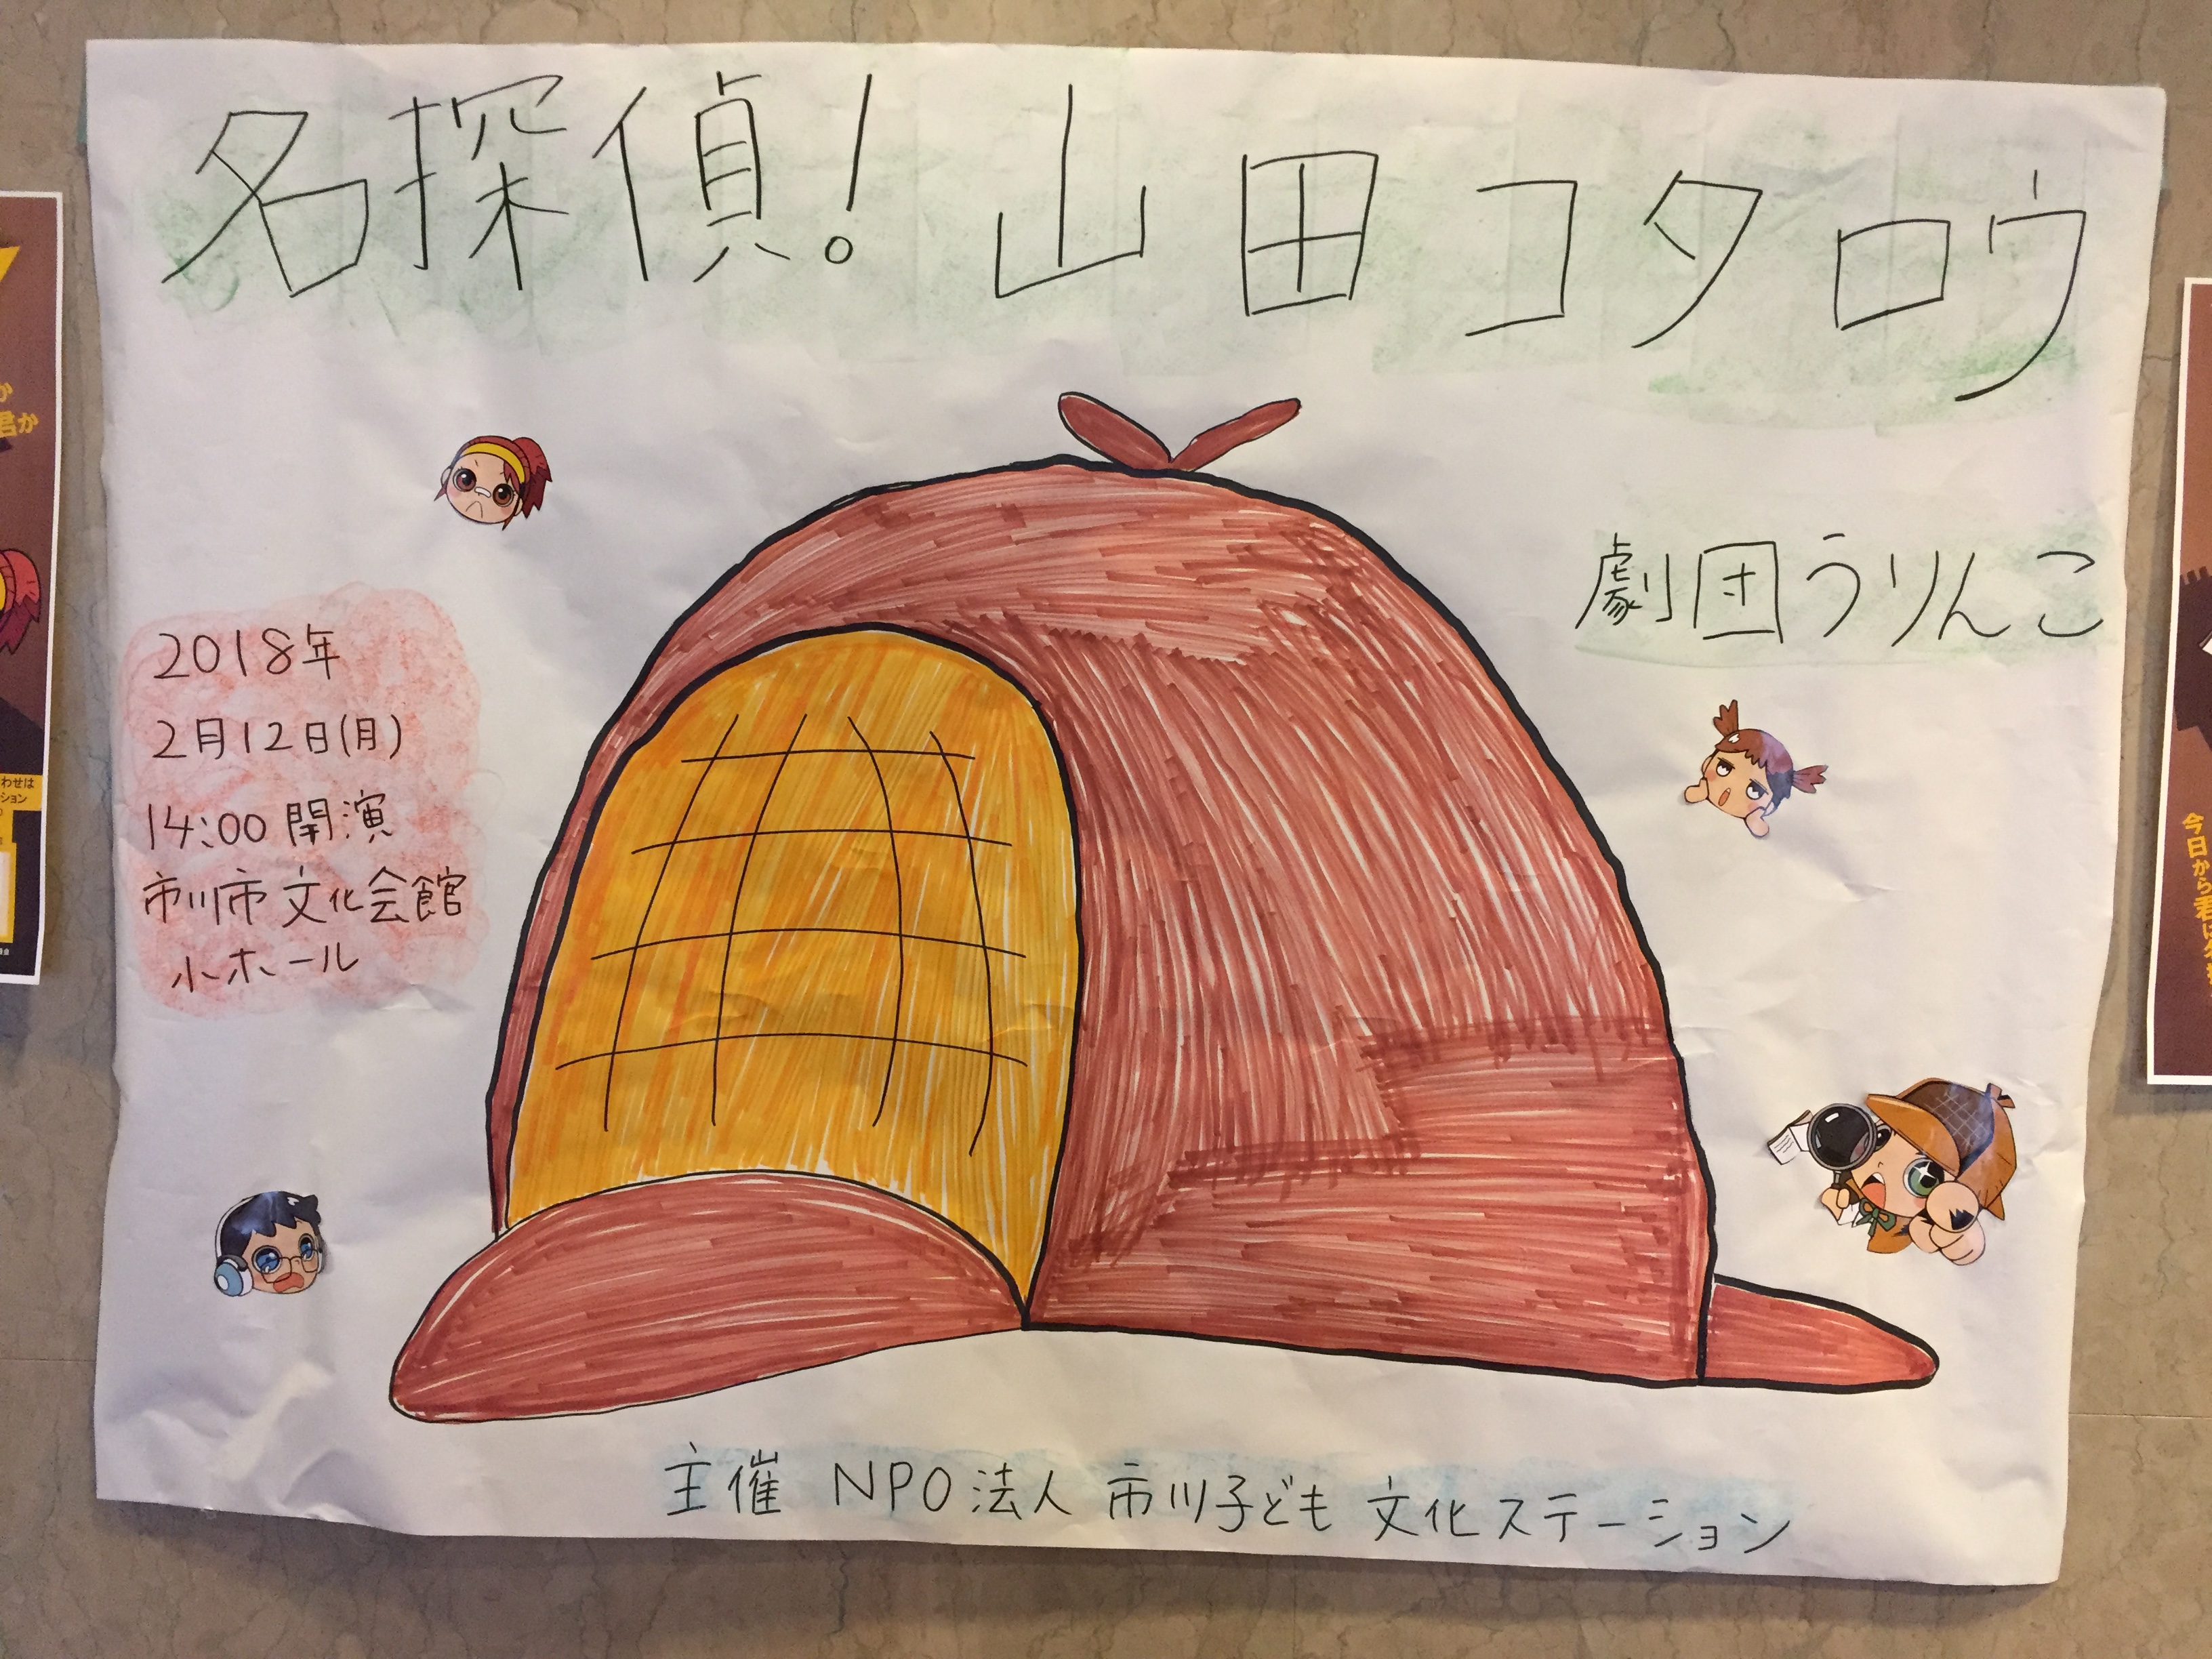 名探偵! 山田コタロウ
劇団うりんこ
2018年
2月12日(月)
14:00 開演
市川市文化会館
小ホール
主催 NPO法人 市川子ども文化ステーション
か
君か
わせは
ション
今日から君は名